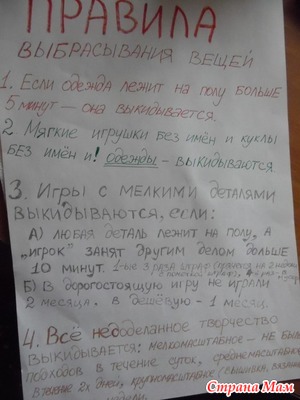 ПРАВИЛА
ВЫБРАСЫВАНИЯ ВЕЩЕЙ
1. Если одежда лежит на полу больше
5 минут — она выкидывается.
2. Мягкие игрушки без имён и куклы
без имён и! одежды – выкидываются
3. Игры с мелкими деталями
выкидываются, если:
А) любая деталь лежит на полу, а
„игрок" занят другим делом больше
10 минут. 1-ые 3 раза штраф
Б) В дорогостоящую игру не играли
2 месяца, в дешёвую - 1 месяц.
4. Всё недоделанное творчество
выкидывается: мелкомасштабное – не бы
подходов в течение суток, среднемасштабн
в течение 2х дней, крупномасштабное (вышивка, вязан
Страна Мам